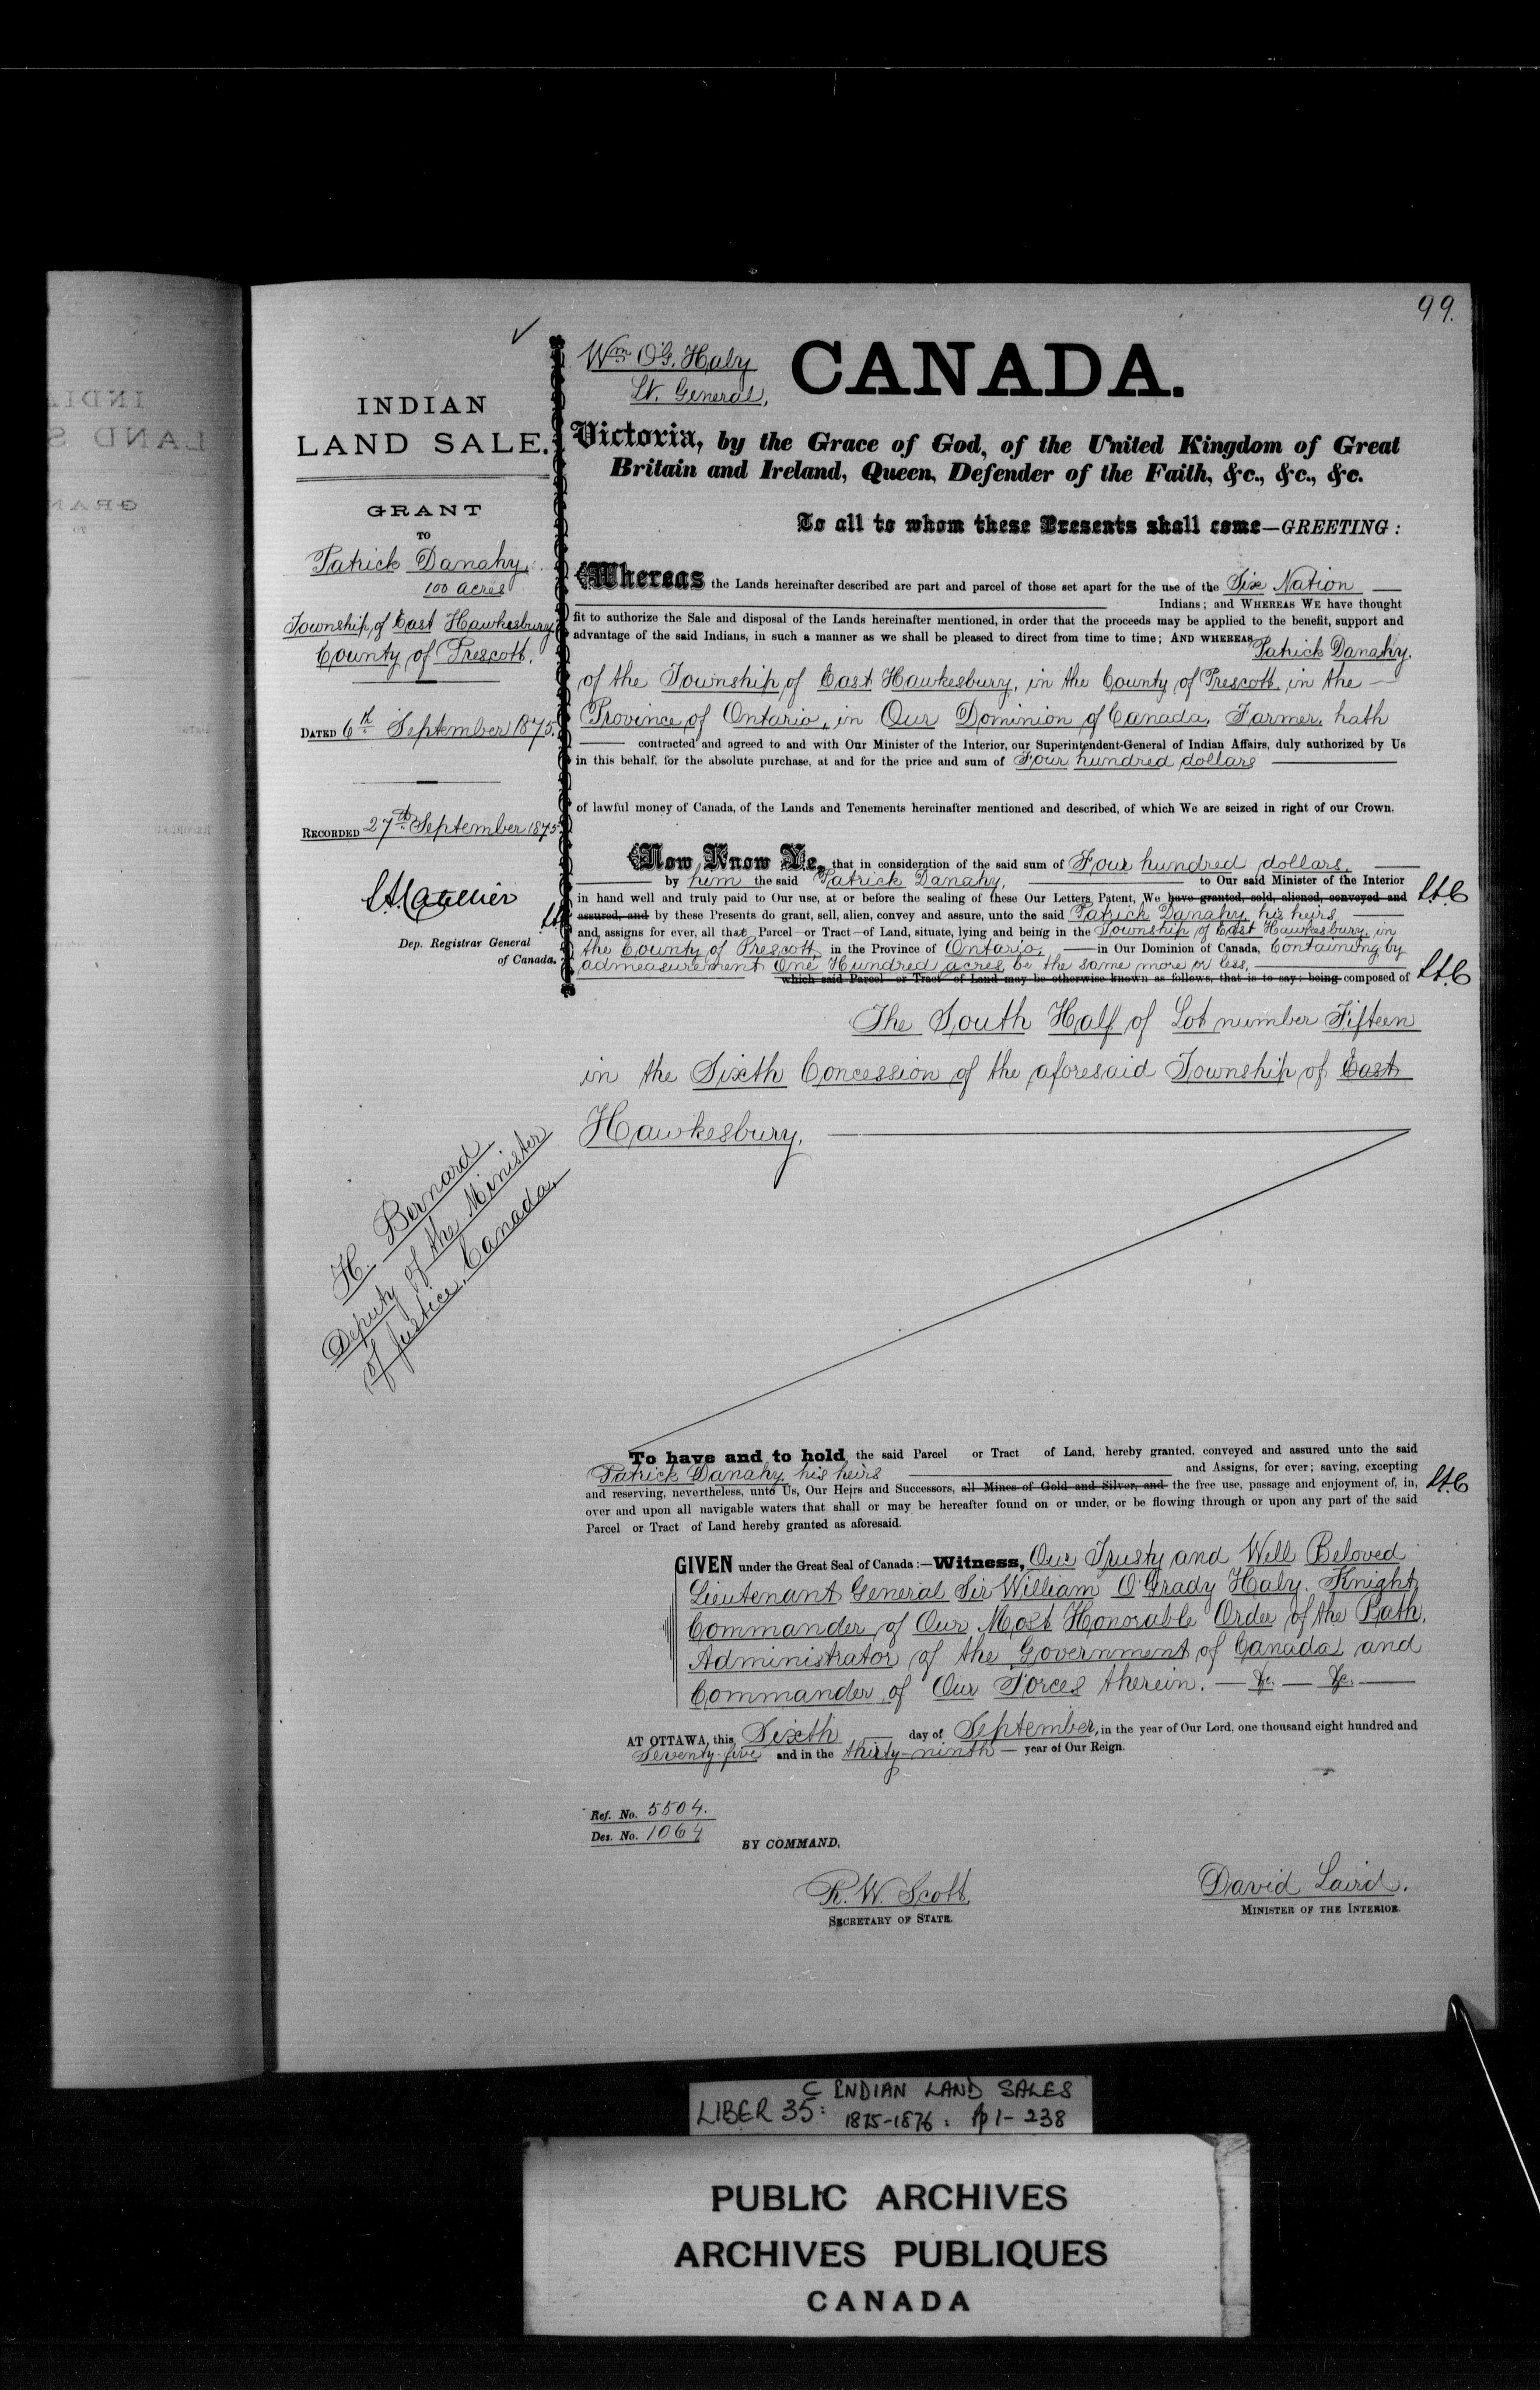 99.
INDIAN
LAND SALE.
GRANT
TO
Patrick Danahy,
100 acres
Township of East Hawkesbury
County of Prescott.
DATED 6th September 1875.
RECORDED 27th September 1875
Dep. Registrar General
of Canada.
H. Bernard
Deputy of the Minister
of Justice, Canada.
Wm O'G. Haly
Lt. General,
CANADA.
Victoria, by the Grace of God, of the United Kingdom of Great
Britain and Ireland, Queen, Defender of the Faith, &c., &c., &c.
To all to whom these Presents shall come—GREETING :
Whereas the Lands hereinafter described are part and parcel of those set apart for the use of the Six Nation
Indians; and WHEREAS WE have thought
fit to authorize the Sale and disposal of the Lands hereinafter mentioned, in order that the proceeds may be applied to the benefit, support and
advantage of the said Indians, in such a manner as we shall be pleased to direct from time to time; AND WHEREAS
Patrick Danahy,
of the Township of East Hawkesbury, in the County of Prescott, in the —
Province of Ontario, in Our Dominion of Canada, Farmer, hath
contracted and agreed to and with Our Minister of the Interior, our Superintendent-General of Indian Affairs, duly authorized by Us
in this behalf, for the absolute purchase, at and for the price and sum of Four hundred dollars
of lawful money of Canada, of the Lands and Tenements hereinafter mentioned and described, of which We are seized in right of our Crown.
Now Know Ye, that in consideration of the said sum of Four hundred dollars,
by him the said Patrick Danahy, to Our said Minister of the Interior
in hand well and truly paid to Our use, at or before the sealing of these Our Letters Patent, We have granted, sold, aliened, conveyed and
assured, and by these Presents do grant, sell, alien, convey and assure, unto the said Patrick Danahy, his heirs
and assigns for ever, all that Parcel or Tract of Land, situate, lying and being in the Township of East Hawkesbury, in
the County of Prescott, in the Province of Ontario, in Our Dominion of Canada, Containing by
admeasurement One Hundred acres, be the same more or less,
which said Parcel or Tract of Land may be otherwise known as follows, that is to say: being composed of
The South Half of Lot number Fifteen
in the Sixth Concession of the aforesaid Township of East
Hawkesbury,
To have and to hold the said Parcel or Tract of Land, hereby granted, conveyed and assured unto the said
Patrick Danahy, his heirs and Assigns, for ever; saving, excepting
and reserving, nevertheless, unto Us, Our Heirs and Successors, all Mines of Gold and Silver, and the free use, passage and enjoyment of, in,
over and upon all navigable waters that shall or may be hereafter found on or under, or be flowing through or upon any part of the said
Parcel or Tract of Land hereby granted as aforesaid.
GIVEN under the Great Seal of Canada :—Witness, Our Trusty and Well Beloved
Lieutenant General Sir William O'Grady Haly, Knight
Commander of Our Most Honorable Order of the Bath,
Administrator of the Government of Canada and
Commander of Our Forces therein. — &c. — &c. —
AT OTTAWA, this Sixth day of September, in the year of Our Lord, one thousand eight hundred and
Seventy-five and in the thirty-ninth — year of Our Reign.
Ref. No. 5504.
Des. No. 1064
BY COMMAND,
R. W. Scott,
SECRETARY OF STATE.
David Laird,
MINISTER OF THE INTERIOR.
C INDIAN LAND SALES
LIBER 35: 1875-1876: pp 1-238
PUBLIC ARCHIVES
ARCHIVES PUBLIQUES
CANADA